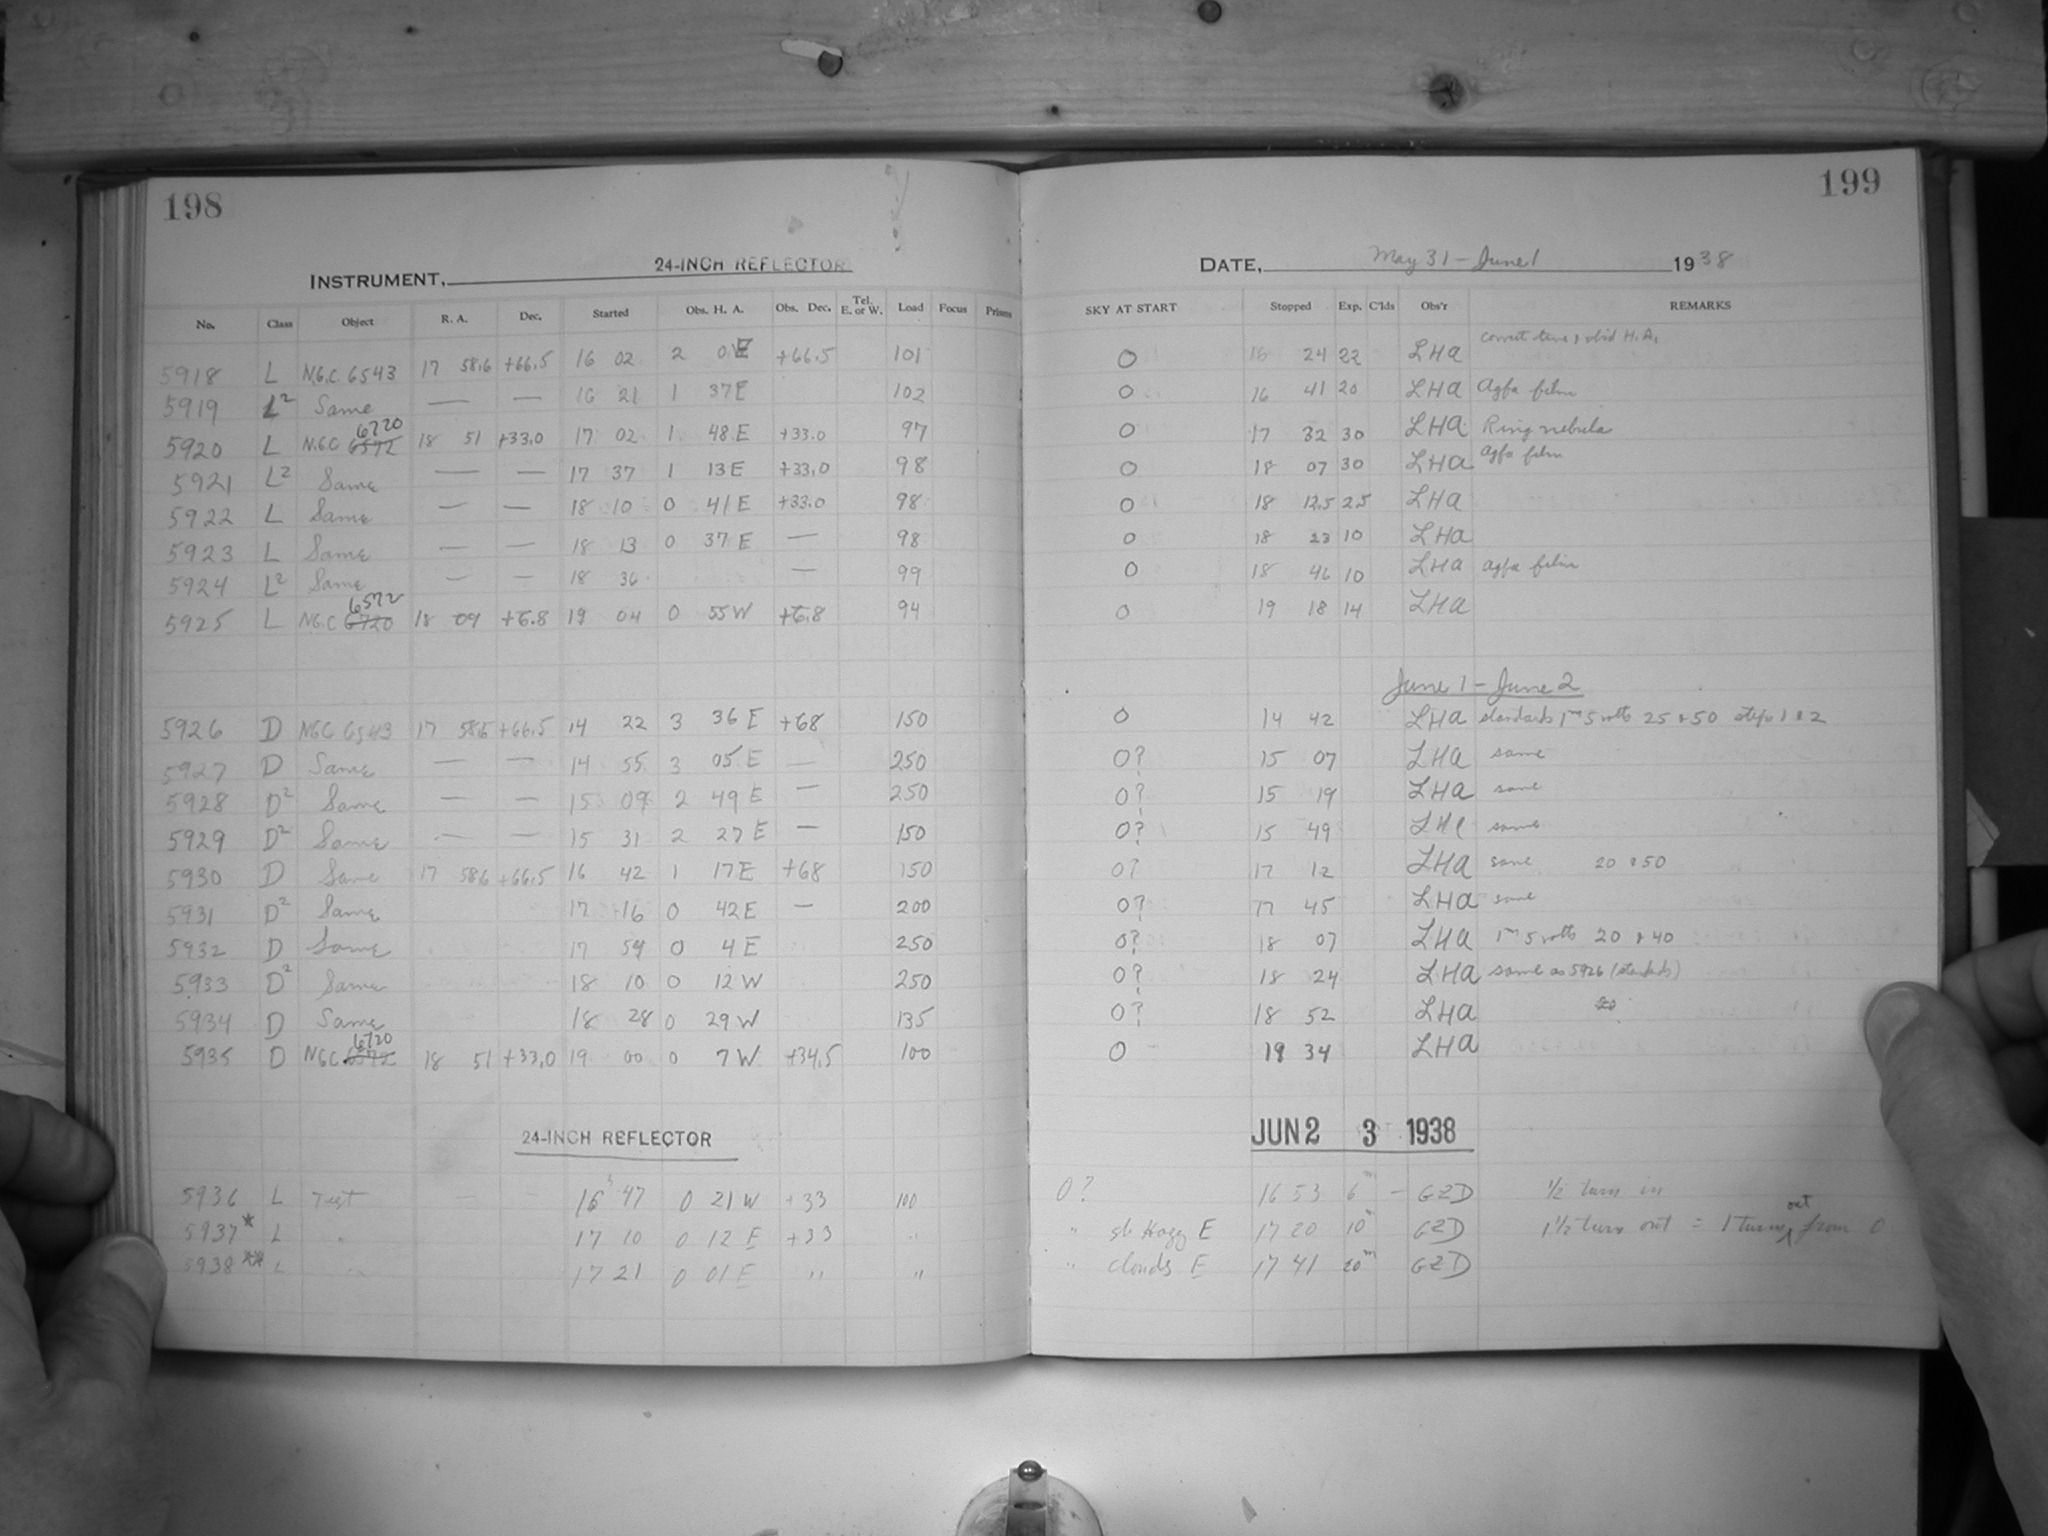 198
199
INSTRUMENT, 24-INCH REFLECTOR
DATE, May 31 - June 1 1938
No. Class Object R. A. Dec. Started Obs. H. A. Obs. Dec. Tel. E. or W. Load Focus Prisms SKY AT START Stopped Exp. C'lds Obs'r REMARKS
5918 L N.G.C. 6543 17 58.6 +66.5 16 02 2 01 E +66.5 101 O 16 24 22 LHA H.A.
5919 L² Same — — 16 21 1 37 E 102 O 16 41 20 LHA Agfa film
5920 L N.G.C 6572 6720 18 51 +33.0 17 02 1 48 E +33.0 97 O 17 32 30 LHA Ring nebula
5921 L² Same — — 17 37 1 13 E +33.0 98 O 18 07 30 LHA Agfa film
5922 L Same — — 18 10 0 41 E +33.0 98 O 18 12.5 2.5 LHA
5923 L Same — — 18 13 0 37 E — 98 O 18 23 10 LHA
5924 L² Same — — 18 36 — 99 O 18 46 10 LHA Agfa film
5925 L N.G.C 6720 6572 18 09 +6.8 19 04 0 55 W +6.8 94 O 19 18 14 LHA
June 1 - June 2
5926 D NGC 6543 17 58.6 +66.5 14 22 3 36 E +68 150 O 14 42 LHA standards 1ᵐ 5 volts 25 & 50 steps 1 & 2
5927 D Same — — 14 55 3 05 E — 250 O? 15 07 LHA same
5928 D² Same — — 15 09 2 49 E — 250 O? 15 19 LHA same
5929 D² Same — — 15 31 2 27 E — 150 O? 15 49 LHA same
5930 D Same 17 58.6 +66.5 16 42 1 17 E +68 150 O? 17 12 LHA same 20 & 50
5931 D² Same 17 16 0 42 E — 200 O? 17 45 LHA same
5932 D Same 17 54 0 4 E 250 O? 18 07 LHA 1ᵐ 5 volts 20 & 40
5933 D² Same 18 10 0 12 W 250 O? 18 24 LHA same as 5926 (standards)
5934 D Same 18 28 0 29 W 135 O? 18 52 LHA
5935 D NGC 6572 6720 18 51 +33.0 19 00 0 7 W +34.5 100 O 19 34 LHA
24-INCH REFLECTOR
JUN 2 3 1938
5936 L Test — — 16ʰ 47 0 21 W +33 100 O? 16 53 6ᵐ — GZD 1/2 turn in
5937* L " 17 10 0 12 E +33 " " sl. Hazy E 17 20 10ᵐ GZD 1 1/2 turn out = 1 turn out from 0
5938** L " 17 21 0 01 E " " " clouds E 17 41 20ᵐ GZD